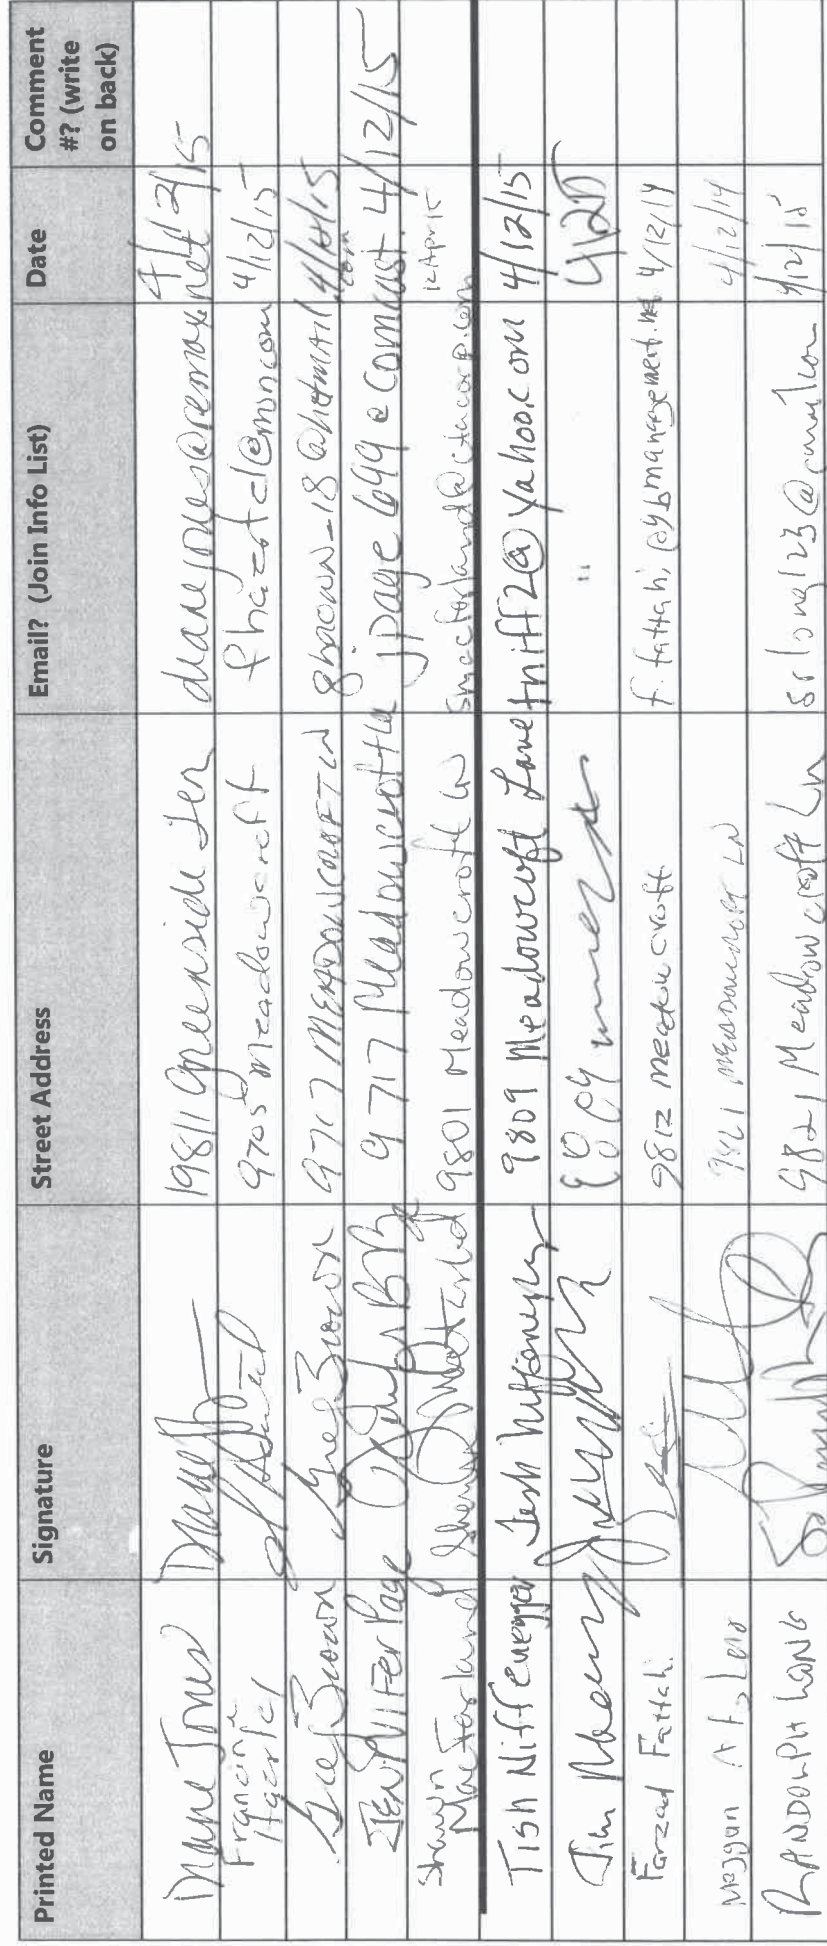 Printed Name Signature Street Address Email? (Join Info List) Date Comment #? (write on back)
Diane Jones 19811 Greenside Ter dianejones@remax.net 4/12/15
Francine 9705 Meadowcroft 4/12/15
Greg Brown Greg Brown 9717 MEADOWCROFT LN gbrown_18@hotmail.com
JENNIFER Page 9717 Meadowcroft Ln jpage1699@comcast. 4/12/15
Shawn MacFarland 9801 Meadowcroft Ln smacfarland@ctacorp.com 12 Apr 15
Tish Niffenegger Tish Niffenegger 9809 Meadowcroft Lane tniff2@yahoo.com 4/12/15
9809 " 41215
Farzad Fattahi 9812 Meadowcroft f.fattahi@ybmanagement.net 4/12/14
Meggan 9821 MEADOWCROFT LN 4/12/14
RANDOLPH LONG 9821 Meadowcroft Ln 4/12/15